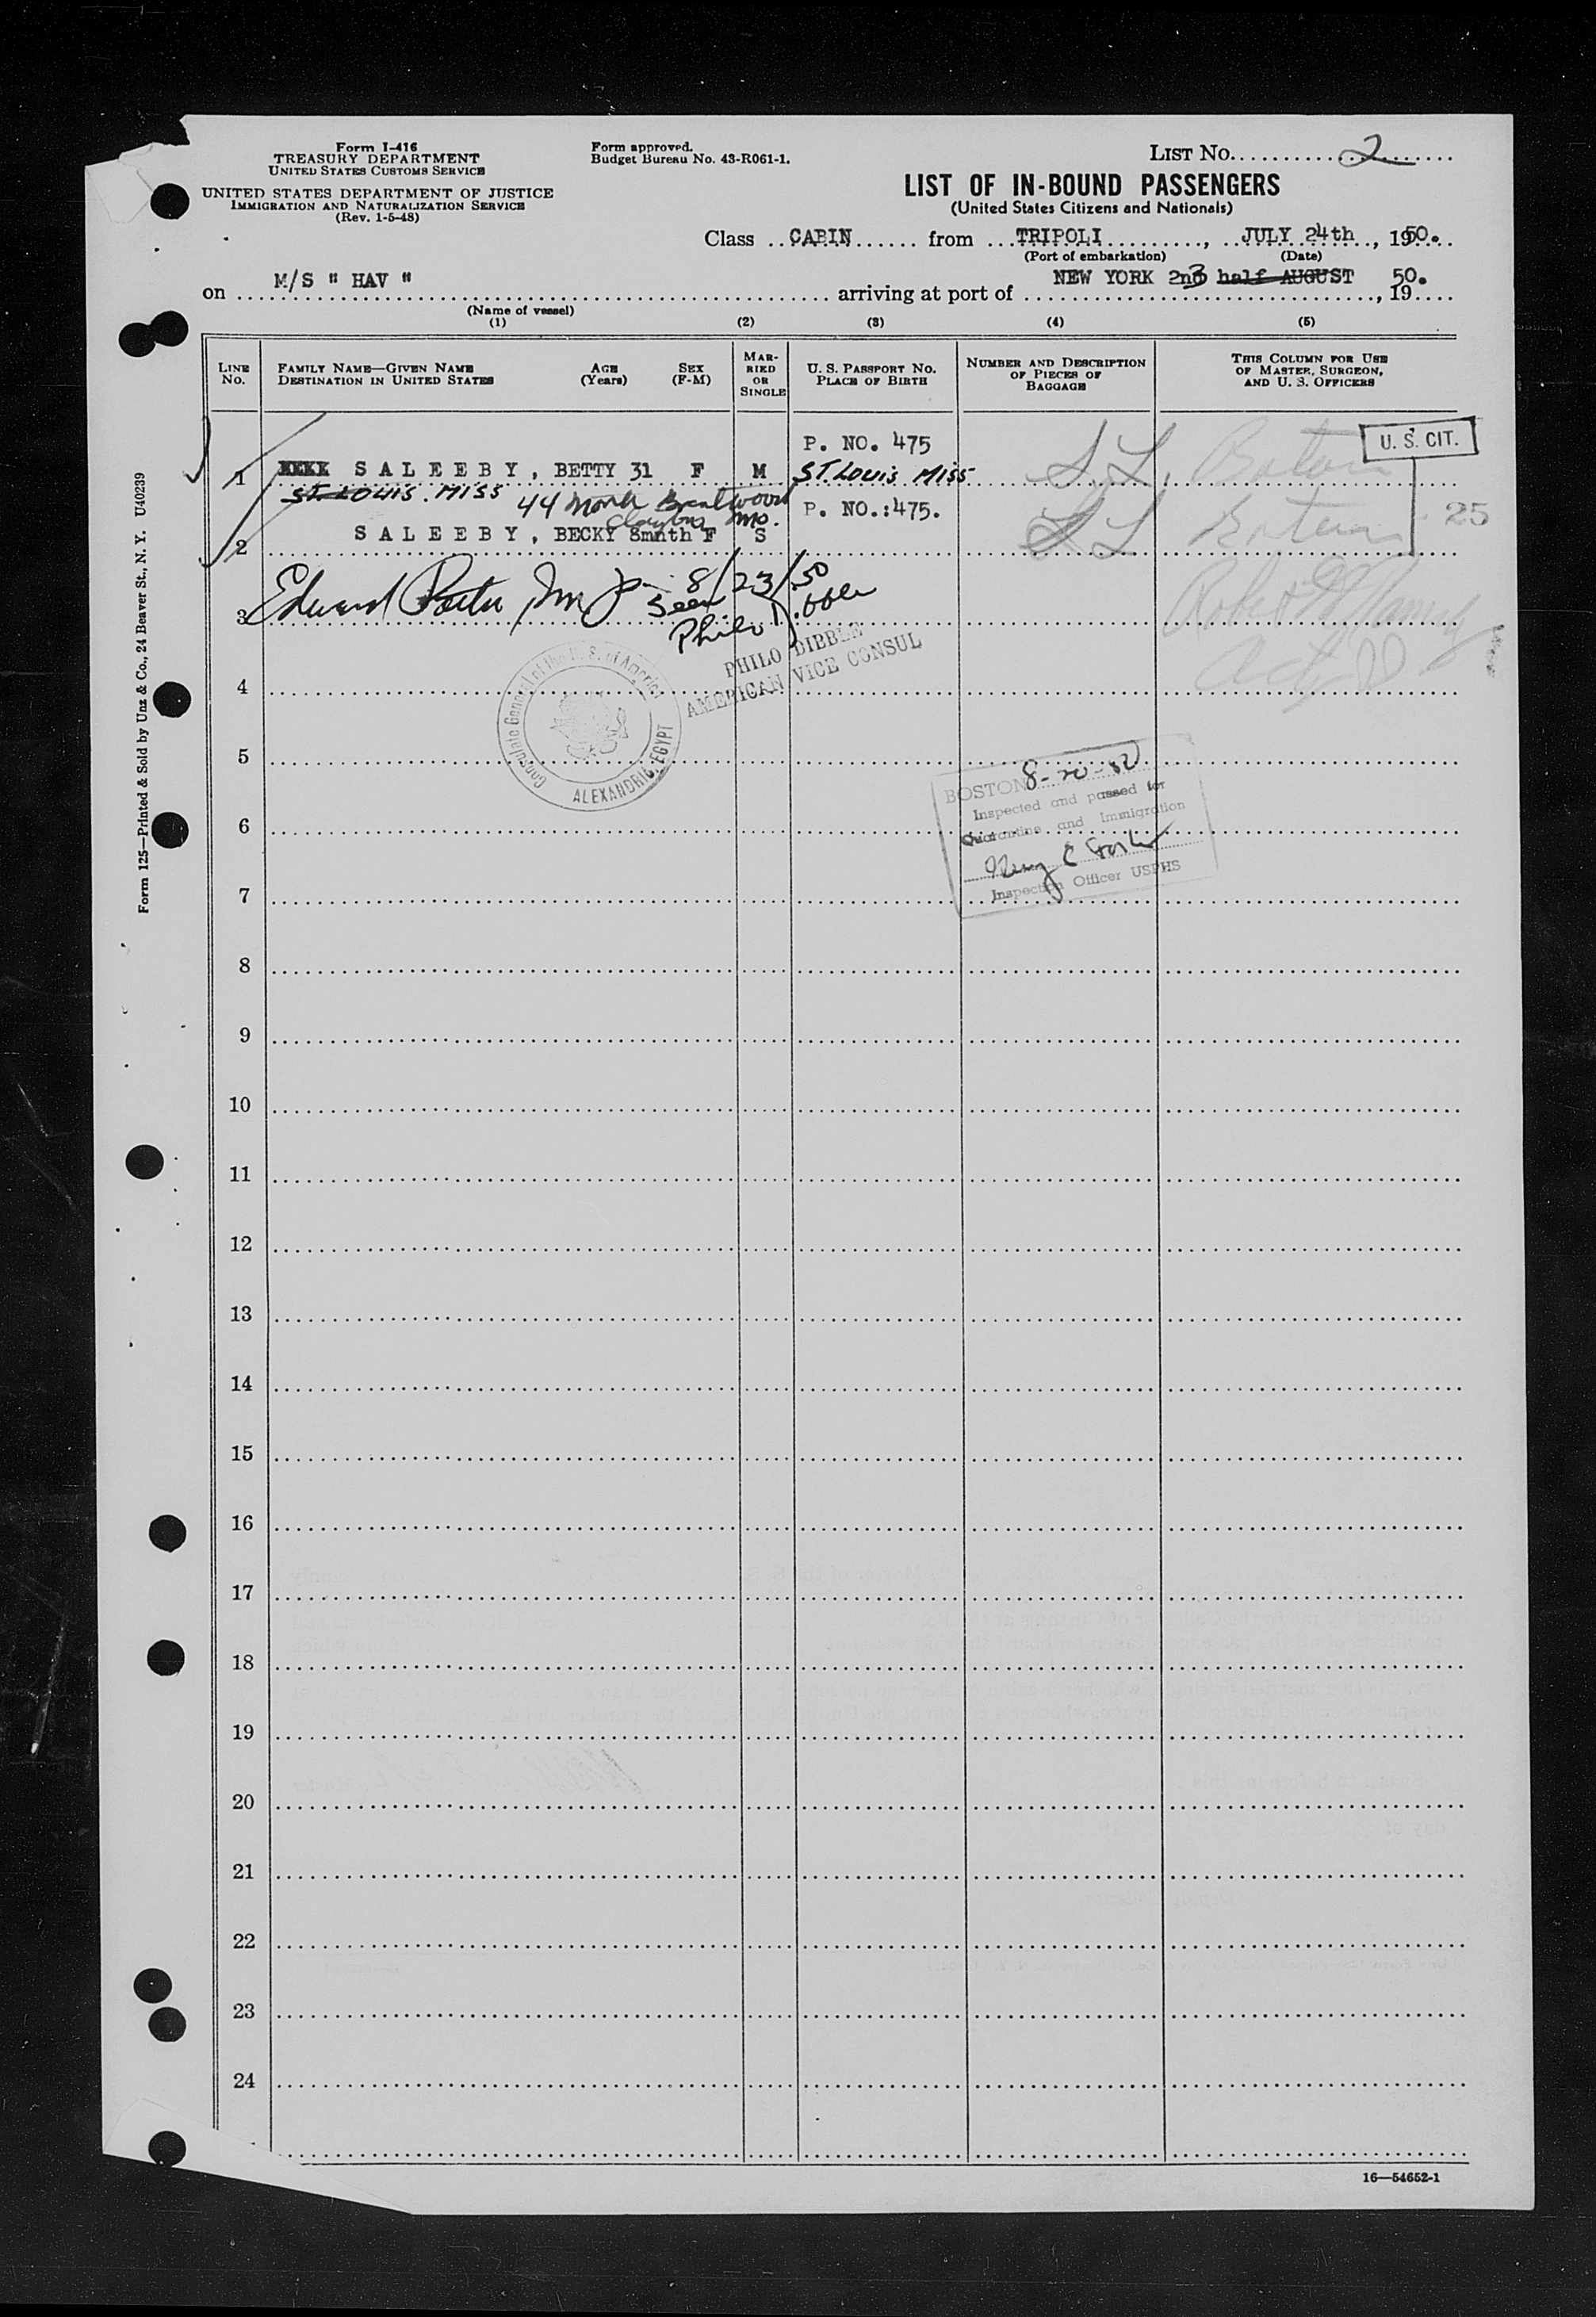 Form I-416
TREASURY DEPARTMENT
UNITED STATES CUSTOMS SERVICE
UNITED STATES DEPARTMENT OF JUSTICE
IMMIGRATION AND NATURALIZATION SERVICE
(Rev. 1-5-48)
Form approved.
Budget Bureau No. 43-R061-1.
LIST NO. 2
LIST OF IN-BOUND PASSENGERS
(United States Citizens and Nationals)
Class CABIN from TRIPOLI, JULY 24th, 1950.
(Port of embarkation) (Date)
on M/S " HAV " arriving at port of NEW YORK 2nd half AUGUST, 19 50.
(Name of vessel)
(1) (2) (3) (4) (5)
LINE No. FAMILY NAME—GIVEN NAME DESTINATION IN UNITED STATES AGE (Years) SEX (F-M) MARRIED OR SINGLE U. S. PASSPORT NO. PLACE OF BIRTH NUMBER AND DESCRIPTION OF PIECES OF BAGGAGE THIS COLUMN FOR USE OF MASTER, SURGEON, AND U. S. OFFICERS
P. NO. 475
U. S. CIT.
1 SALEEBY, BETTY 31 F M ST. LOUIS MISS
ST. LOUIS. MISS 44 North Brentwood P. NO.:475.
Clayton Mo.
25
2 SALEEBY, BECKY 8mnth F S
3 Edward 8/23/50
Seen
Philo Dibble
PHILO DIBBLE
AMERICAN VICE CONSUL
4
Consulate General of the U. S. of America
ALEXANDRIA, EGYPT
5
BOSTON 8-20-50
Inspected and passed for
Quarantine and Immigration
6
Inspection Officer USPHS
7
8
9
10
11
12
13
14
15
16
17
18
19
20
21
22
23
24
16—54652-1
Form 125—Printed & Sold by Unz & Co., 24 Beaver St., N. Y. U40239